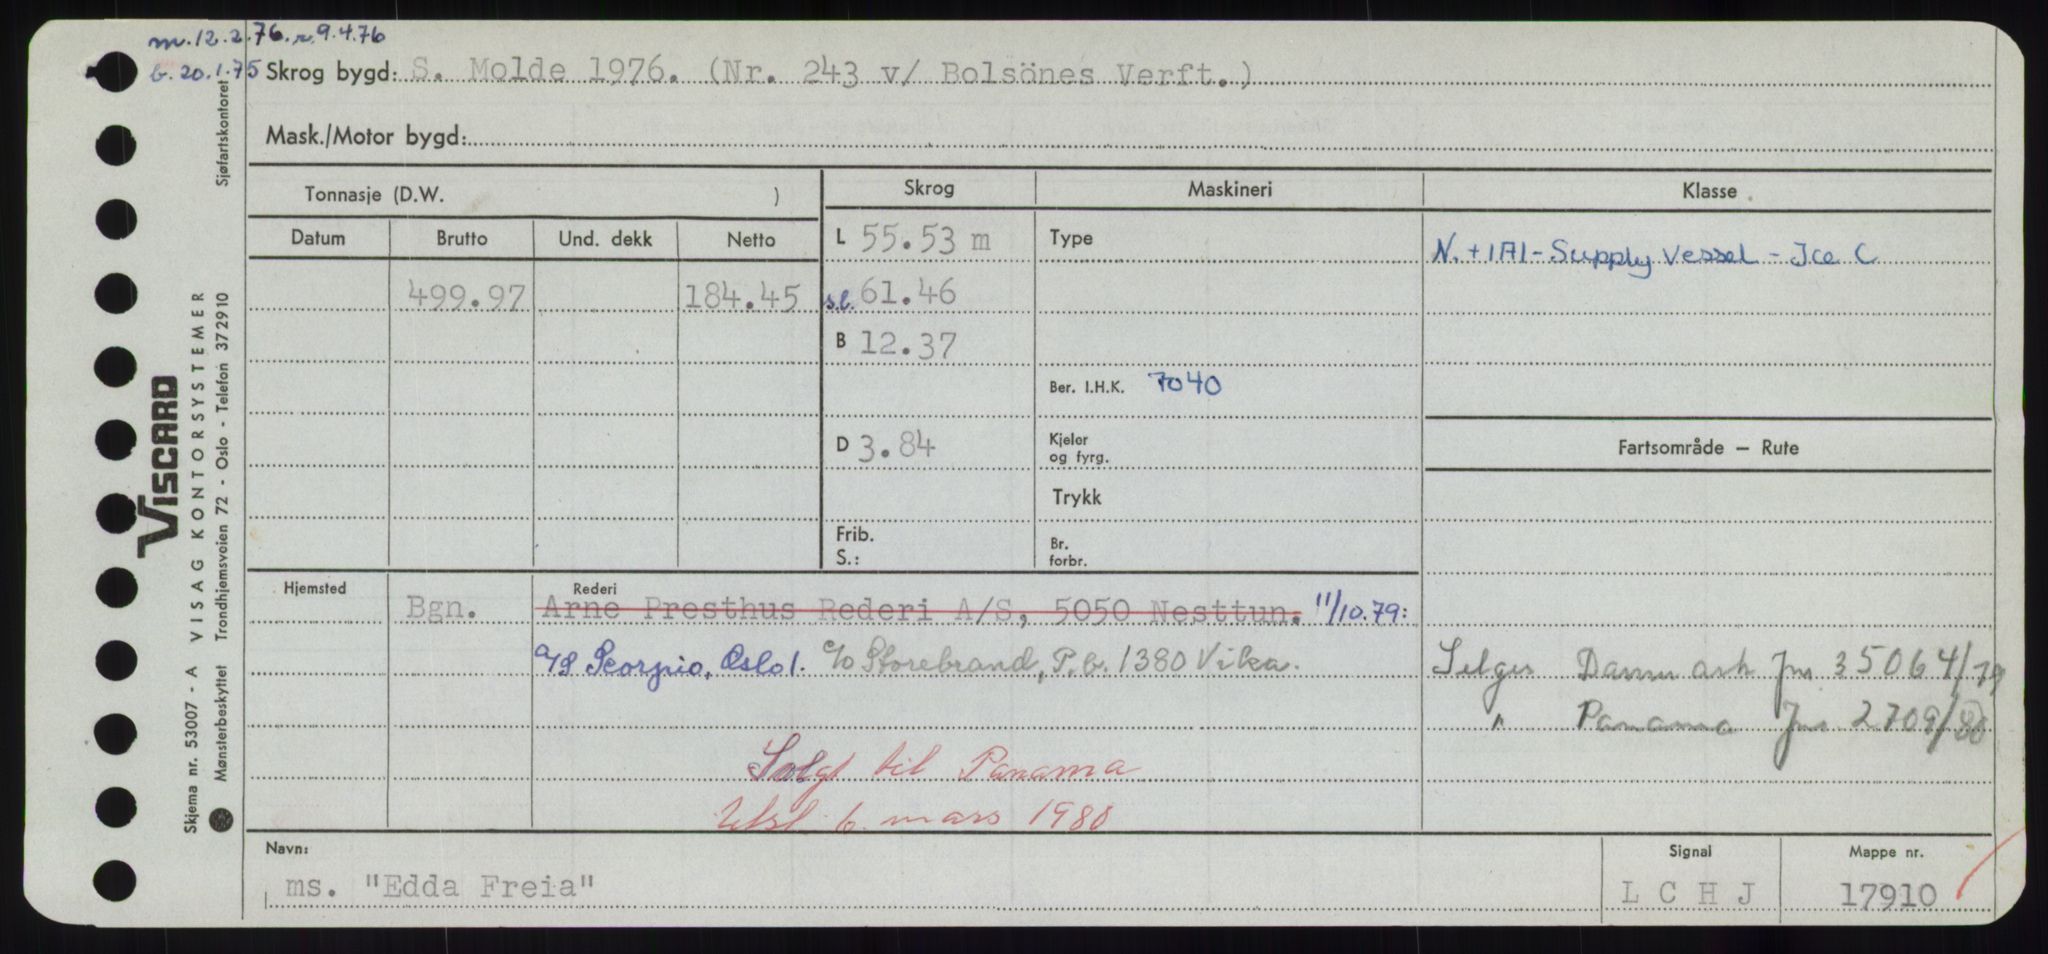 m. 12.2.76. r. 9.4.76
b. 20.1.75 Skrog bygd: S. Molde 1976. (Nr. 243 v/ Bolsönes Verft.)
Mask./Motor bygd:
Tonnasje (D.W. ) Skrog Maskineri Klasse
Datum Brutto Und. dekk Netto L 55.53 m Type N. +1A1 - Supply Vessel - Ice C
499.97 184.45 s.l. 61.46
B 12.37
Ber. I.H.K. 7040
D 3.84 Kjeler og fyrg. Fartsområde — Rute
Trykk
Frib. S.: Br. forbr.
Hjemsted Rederi
Bgn. Arne Presthus Rederi A/S, 5050 Nesttun. 11/10.79:
A/S Scorpio, Oslo 1. c/o Storebrand, P.b. 1380 Vika. Selges Danmark Jnr 35064/79
" Panama Jnr 2709/80
Solgt til Panama
Utsl. 6. mars 1980
Navn: Signal Mappe nr.
ms. "Edda Freia" L C H J 17910
Sjøfartskontoret
VISCARD
Skjema nr. 53007 - A VISAG KONTORSYSTEMER
Mønsterbeskyttet Trondhjemsveien 72 - Oslo - Telefon 372910